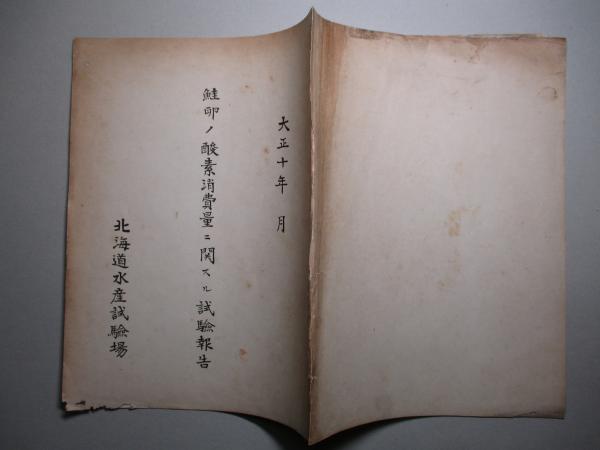 大正十年　月
鮭卵ノ酸素消費量ニ関スル試験報告
北海道水産試験場